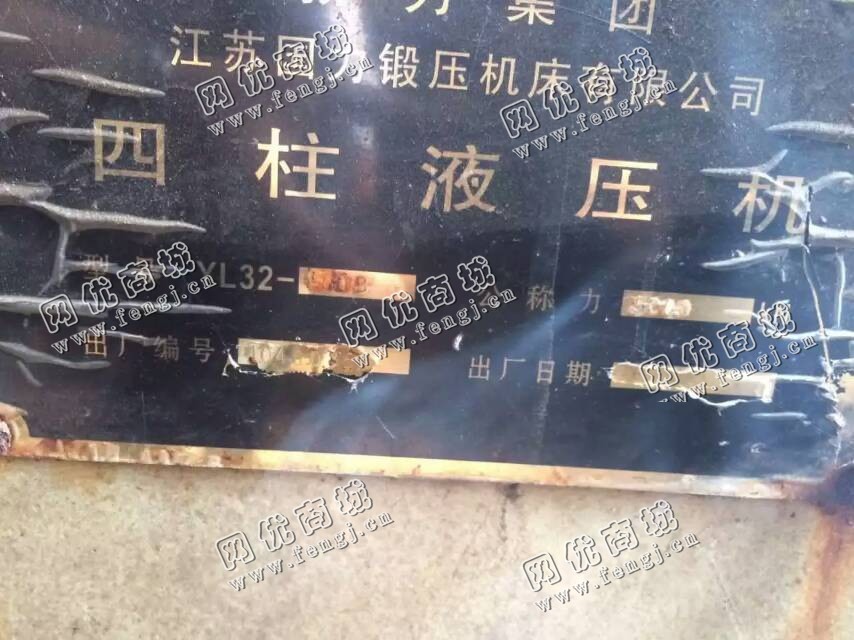 力集团
江苏国力锻压机床有限公司
四柱液压机
型号 YL32- 公称力
出厂编号 出厂日期
网优商城
www.fengj.cn
网优商城
www.fengj.cn
网优商城
www.fengj.cn
网优商城
www.fengj.cn
网优商城
www.fengj.cn
网优商城
www.fengj.cn
网优商城
www.fengj.cn